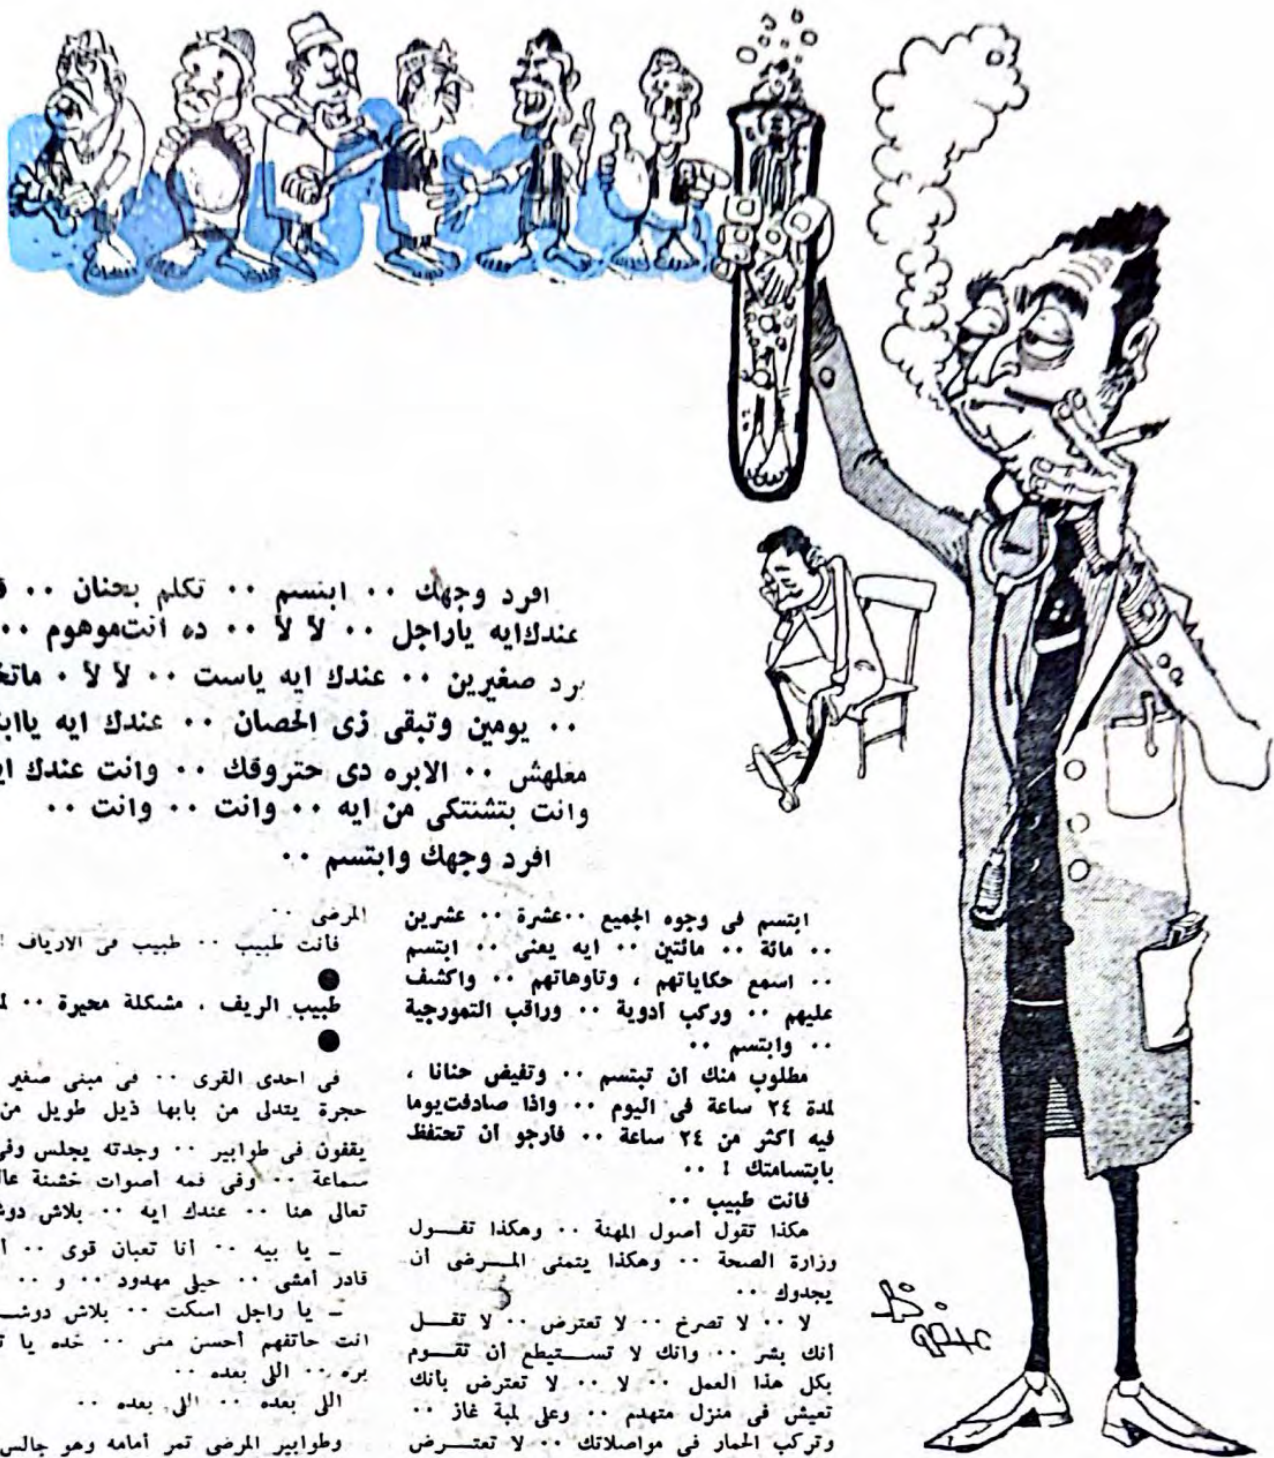 افرد وجهك ٠٠ ابتسم ٠٠ تكلم بحنان ٠٠
عندك ايه ياراجل ٠٠ لأ لأ ٠٠ ده انت موهوم ٠٠
برد صغيرين ٠٠ عندك ايه ياست ٠٠ لأ لأ ٠
٠٠ يومين وتبقى زى الحصان ٠٠ عندك ايه
معلهش ٠٠ الابره دى حتروقك ٠٠ وانت عندك
وانت بتشتكى من ايه ٠٠ وانت ٠٠ وانت ٠٠
افرد وجهك وابتسم ٠٠
ابتسم فى وجوه الجميع ٠٠ عشرة ٠٠ عشرين
٠٠ مائة ٠٠ مائتين ٠٠ ايه يعنى ٠٠ ابتسم
٠٠ اسمع حكاياتهم ، وتاوهاتهم ٠٠ واكشف
عليهم ٠٠ وركب أدوية ٠٠ وراقب التمورجية
٠٠ وابتسم ٠٠
مطلوب منك ان تبتسم ٠٠ وتفيض حنانا ،
لمدة ٢٤ ساعة فى اليوم ٠٠ واذا صادفت يوما
فيه اكثر من ٢٤ ساعة ٠٠ فارجو ان تحتفظ
بابتسامتك ! ٠٠
فانت طبيب ٠٠
هكذا تقول أصول المهنة ٠٠ وهكذا تقـــول
وزارة الصحة ٠٠ وهكذا يتمنى المـــرضى أن
يجدوك ٠٠
لا ٠٠ لا تصرخ ٠٠ لا تعترض ٠٠ لا تقـــل
أنك بشر ٠٠ وانك لا تســـتيطع أن تقـــوم
بكل هذا العمل ٠٠ لا ٠٠ لا تعترض بأنك
تعيش فى منزل متهدم ٠٠ وعلى لمبة غاز ٠٠
وتركب الحمار فى مواصلاتك ٠٠ لا تعتـــرض
المرضى ٠٠
فأنت طبيب ٠٠ طبيب فى الارياف !
●
طبيب الريف ، مشكلة محيرة ٠٠
●
فى احدى القرى ٠٠ فى مبنى صغير
حجرة يتدلى من بابها ذيل طويل من
يقفون فى طوابير ٠٠ وجدته يجلس
سماعة ٠٠ وفى فمه أصوات خشنة
تعالى هنا ٠٠ عندك ايه ٠٠ بلاش
ـ يا بيه ٠٠ أنا تعبان قوى ٠٠
قادر أمشى ٠٠ حيلى مهدود ٠٠ و ٠٠
ـ يا راجل اسكت ٠٠ بلاش
انت حاتفهم أحسن منى ٠٠ خده يا
بره ٠٠ اللى بعده ٠٠
اللى بعده ٠٠ اللى بعده ٠٠
وطوابير المرضى تمر أمامه وهو جالس